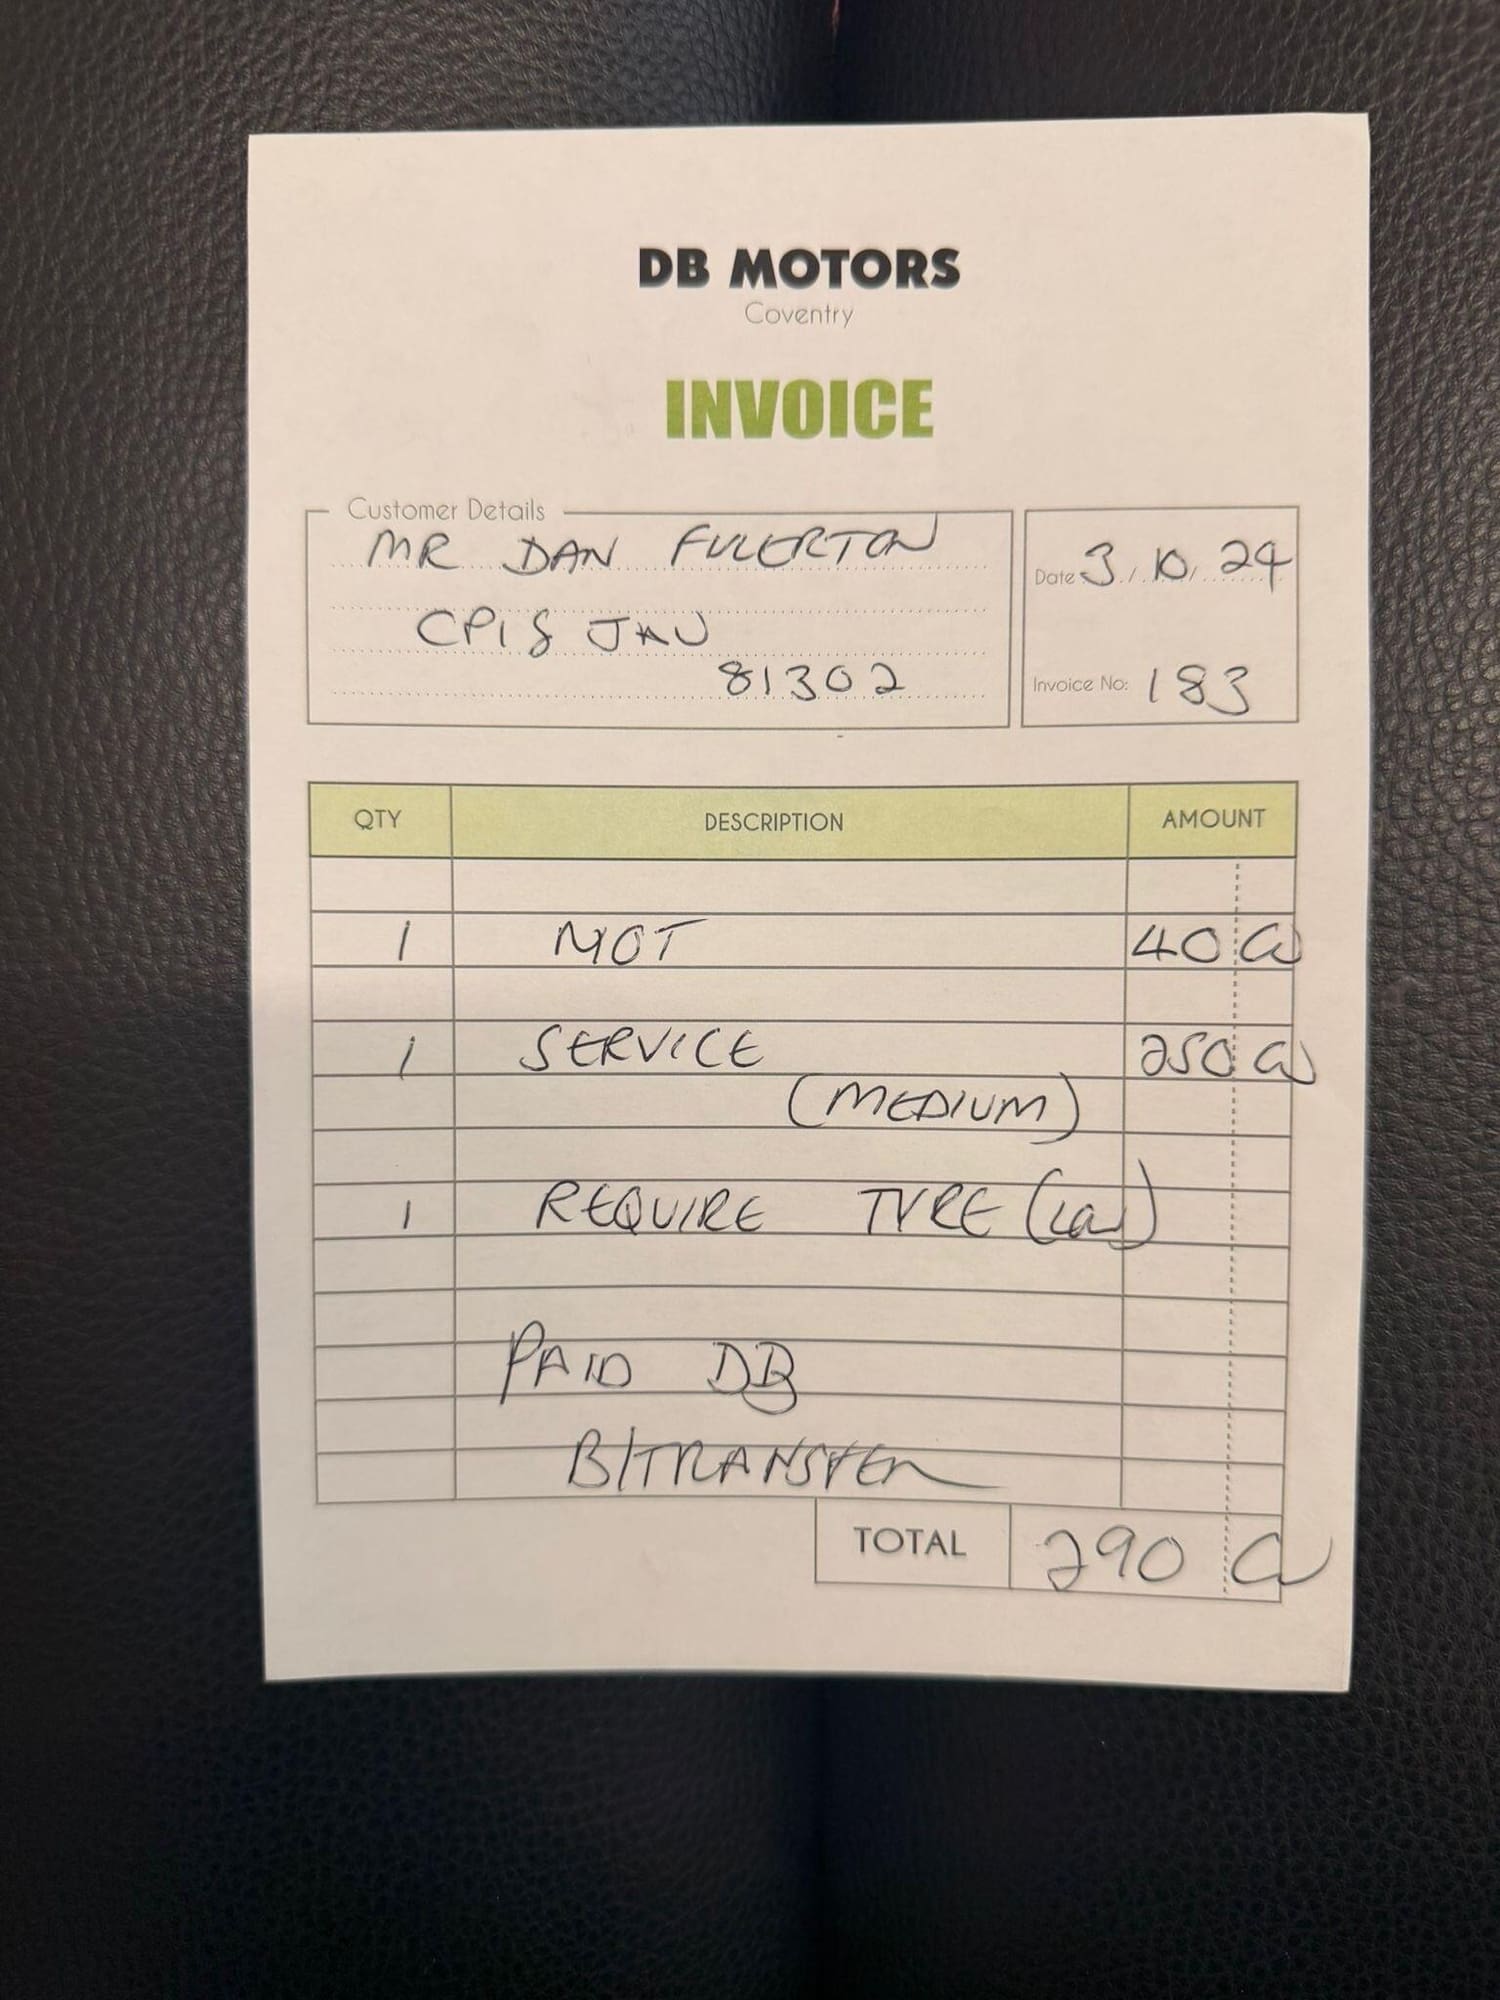 DB MOTORS
Coventry
INVOICE
Customer Details
MR DAN FULERTON
CP18 JAU
81302
Date: 3/10/24
Invoice No: 183
QTY DESCRIPTION AMOUNT
1 MOT 40 00
1 SERVICE 250 00
(MEDIUM)
1 REQUIRE TYRE
PAID DB
B/TRANSFER
TOTAL 290 00